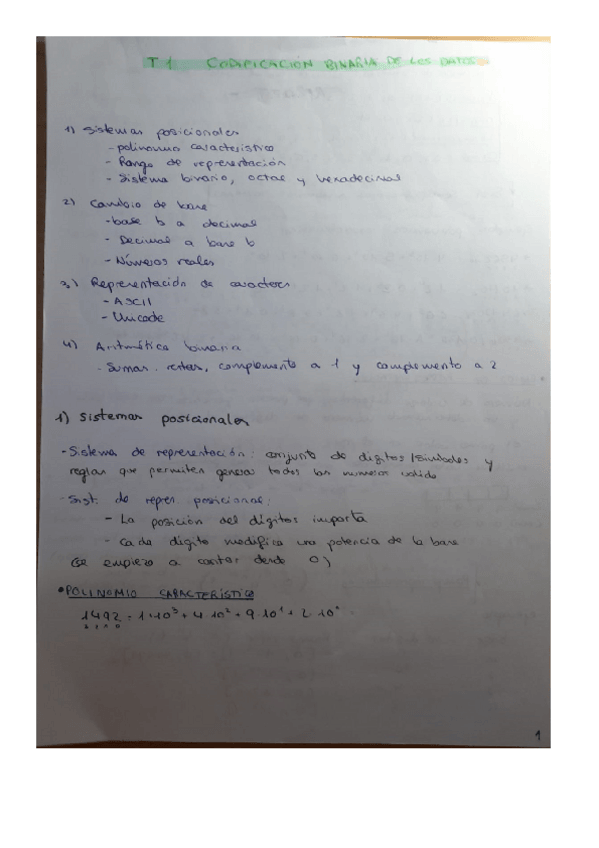 T1 CODIFICACIÓN BINARIA DE LOS DATOS
1) Sistemas posicionales
- polinomio caracteristico
- Rango de representación
- Sistema binario, octal y hexadecimal
2) Cambio de base
- base b a decimal
- Decimal a base b
- Números reales
3) Representación de caracteres
- ASCII
- Unicode
4) Aritmética binaria
- Sumas, restas, complemento a 1 y complemento a 2
1) Sistemas posicionales
- Sistema de representación: conjunto de digitos/símbolos y
reglas que permiten generar todos los numeros valido
- Sist. de repres posicional:
- La posición del dígitos importa
- Cada dígito modifica una potencia de la base
(se empieza a contar desde 0)
• POLINOMIO CARACTERÍSTICO
1492 = 1·10³ + 4·10² + 9·10¹ + 2·10⁰
3 2 1 0
1